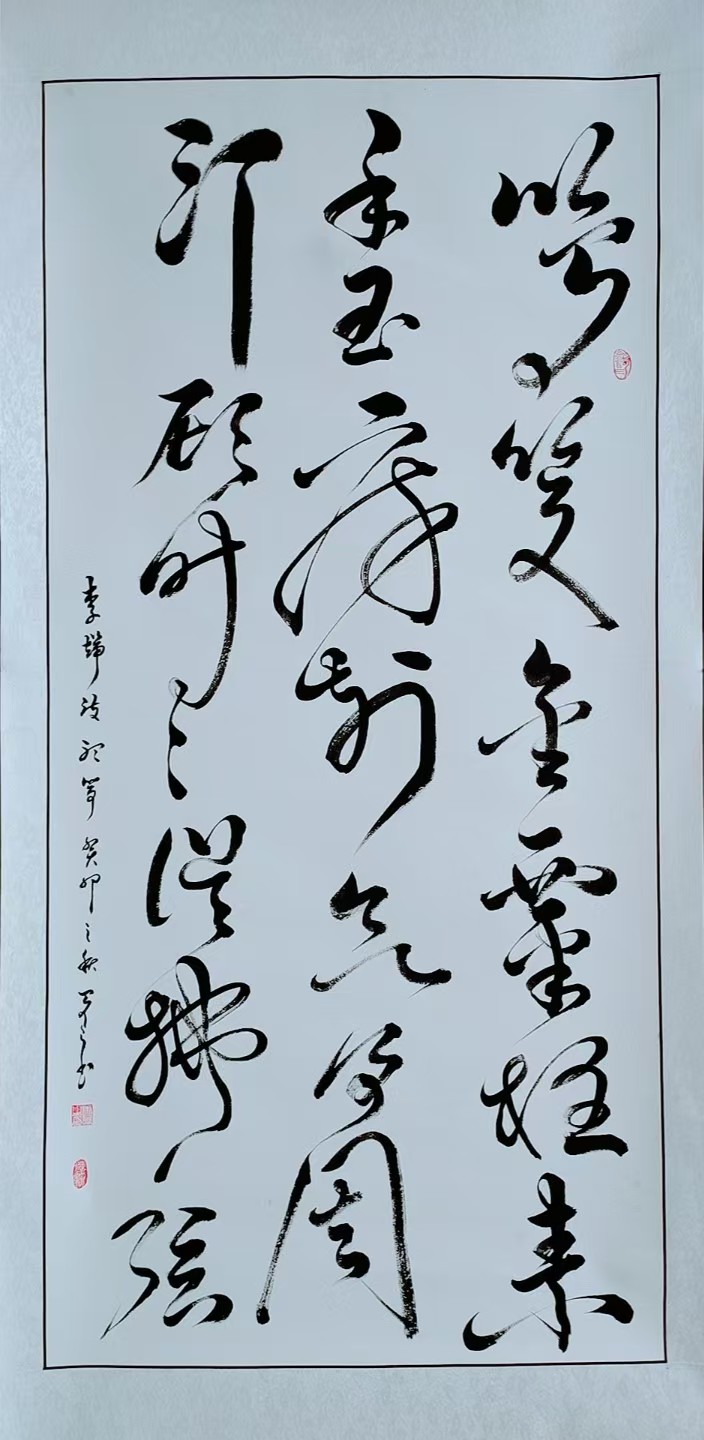 鸣筝金粟柱素
手玉房前欲得周
郎顾时々误拂弦
李端诗听筝癸卯之秋书